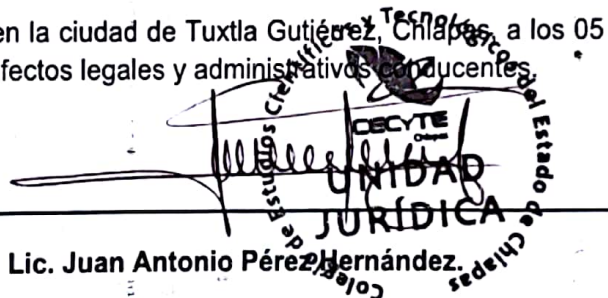 en la ciudad de Tuxtla Gutiérrez, Chiapas, a los 05
fectos legales y administrativos conducentes.
Colegio de Estudios Científicos y Tecnológicos del Estado de Chiapas
CECYTE
UNIDAD
JURÍDICA
Lic. Juan Antonio Pérez Hernández.